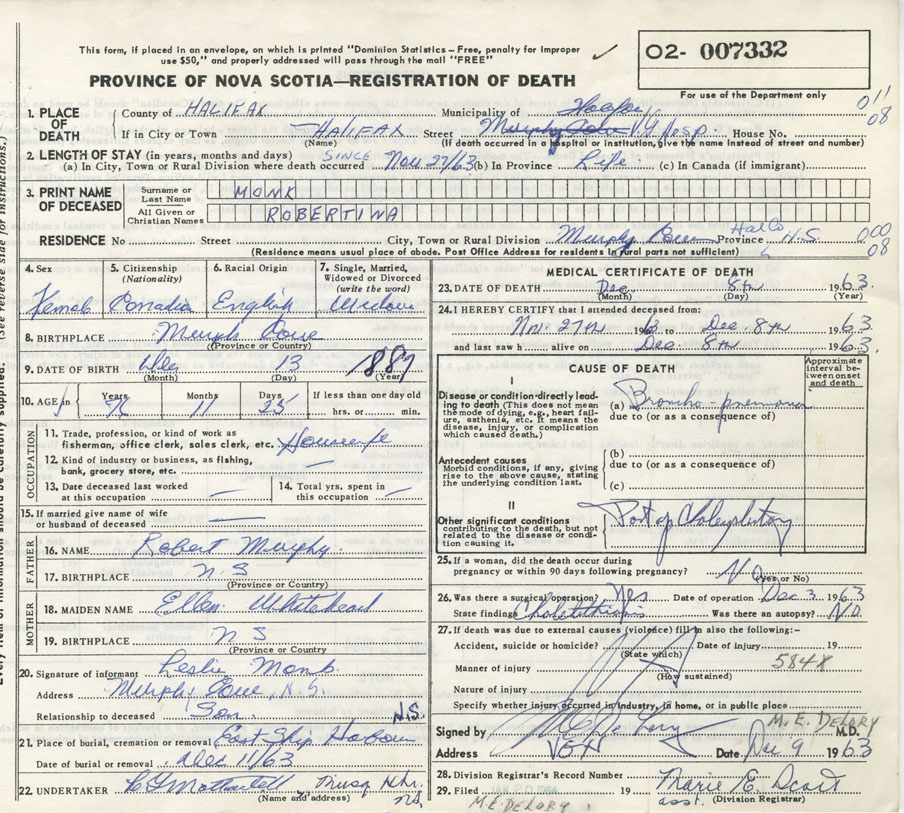 This form, if placed in an envelope, on which is printed "Dominion Statistics – Free, penalty for improper
use $50," and properly addressed will pass through the mail "FREE"
O2- 007332
PROVINCE OF NOVA SCOTIA—REGISTRATION OF DEATH
For use of the Department only
1. PLACE OF DEATH
County of HALIFAX Municipality of 011
If in City or Town HALIFAX Street V G Hosp. House No. 08
(Name) (If death occurred in a hospital or institution, give the name instead of street and number)
2. LENGTH OF STAY (in years, months and days)
(a) In City, Town or Rural Division where death occurred SINCE Nov 27/63 (b) In Province Life (c) In Canada (if immigrant)
3. PRINT NAME OF DECEASED
Surname or Last Name MONK
All Given or Christian Names ROBERTINA
RESIDENCE No Street City, Town or Rural Division Murphy Cove Halifax Province N.S. 000
(Residence means usual place of abode. Post Office Address for residents in rural parts not sufficient) 08
4. Sex Female
5. Citizenship (Nationality) Canadian
6. Racial Origin English
7. Single, Married, Widowed or Divorced (write the word) Widow
8. BIRTHPLACE Murphy Cove
(Province or Country)
9. DATE OF BIRTH Dec 13 1887
(Month) (Day) (Year)
10. AGE in Years 76 Months 11 Days 25 If less than one day old
hrs. or min.
OCCUPATION
11. Trade, profession, or kind of work as
fisherman, office clerk, sales clerk, etc. Housewife
12. Kind of industry or business, as fishing,
bank, grocery store, etc. —
13. Date deceased last worked
at this occupation —
14. Total yrs. spent in
this occupation —
15. If married give name of wife
or husband of deceased —
FATHER
16. NAME Robert Murphy.
17. BIRTHPLACE N.S
(Province or Country)
MOTHER
18. MAIDEN NAME Ellen Whitehead
19. BIRTHPLACE N S
(Province or Country)
20. Signature of informant Leslie Monk
Address Murphy Cove, N.S.
Relationship to deceased Son N.S.
21. Place of burial, cremation or removal East Ship Harbour
Date of burial or removal Dec 11/63
22. UNDERTAKER Musq Hbr. NS
(Name and address)
MEDICAL CERTIFICATE OF DEATH
23. DATE OF DEATH Dec. 8th 1963.
(Month) (Day) (Year)
24. I HEREBY CERTIFY that I attended deceased from:
Nov. 27th 1963 to Dec. 8th 1963.
and last saw h alive on Dec. 8th 1963.
CAUSE OF DEATH
Approximate interval between onset and death
I
Disease or condition directly leading to death (This does not mean the mode of dying, e.g., heart failure, asthenia, etc. It means the disease, injury, or complication which caused death.)
(a) Broncho-pneumonia
due to (or as a consequence of)
Antecedent causes
Morbid conditions, if any, giving rise to the above cause, stating the underlying condition last.
(b)
due to (or as a consequence of)
(c)
II
Other significant conditions
contributing to the death, but not related to the disease or condition causing it.
Post op Cholecystectomy
25. If a woman, did the death occur during
pregnancy or within 90 days following pregnancy? No
(Yes or No)
26. Was there a surgical operation? Yes Date of operation Dec 3 1963
State findings Cholelithiasis Was there an autopsy? No
27. If death was due to external causes (violence) fill in also the following:–
Accident, suicide or homicide? Date of injury 19
(State which) 584X
Manner of injury
(How sustained)
Nature of injury
Specify whether injury occurred in industry, in home, or in public place
M.E. DELORY
Signed by M.D.
Address VGH Date Dec 9 1963
28. Division Registrar's Record Number
29. Filed 19 Marie E. Scott
asst. (Division Registrar)
M.E. DELORY